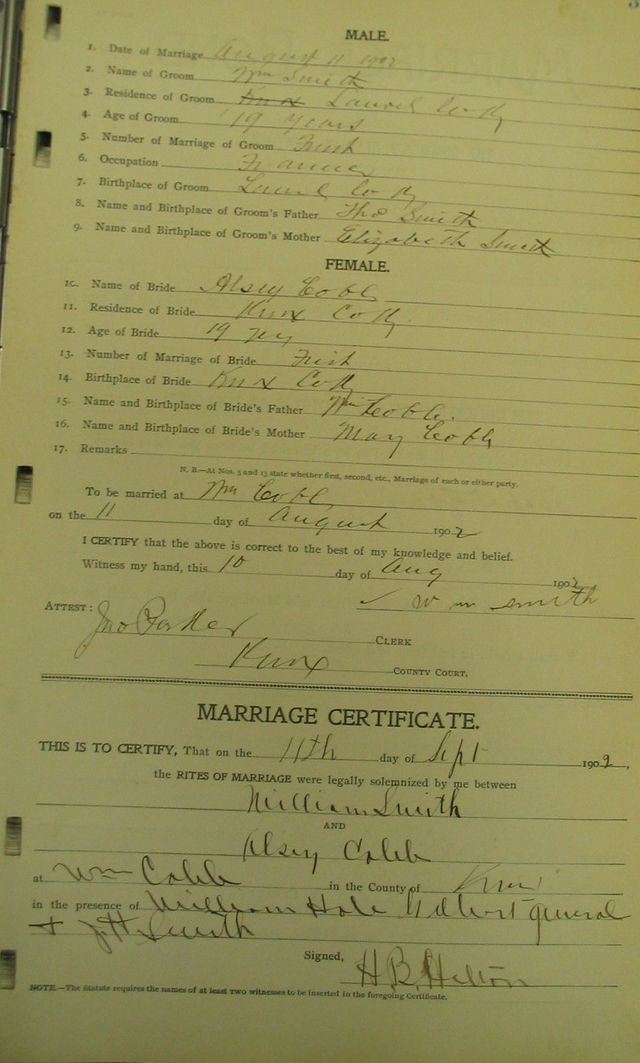 MALE.
1. Date of Marriage August 11 1902
2. Name of Groom Wm Smith
3. Residence of Groom Knox Laurel Co Ky
4. Age of Groom 19 years
5. Number of Marriage of Groom First
6. Occupation Farmer
7. Birthplace of Groom Laurel Co Ky
8. Name and Birthplace of Groom's Father Tho Smith
9. Name and Birthplace of Groom's Mother Elizabeth Smith
FEMALE.
10. Name of Bride Alsey Cobb
11. Residence of Bride Knox Co Ky
12. Age of Bride 19
13. Number of Marriage of Bride First
14. Birthplace of Bride Knox Co Ky
15. Name and Birthplace of Bride's Father Wm Cobb.
16. Name and Birthplace of Bride's Mother Mary Cobb
17. Remarks
N. B.—At Nos. 5 and 13 state whether first, second, etc., Marriage of each or either party.
To be married at Wm Cobb
on the 11 day of August 1902
I CERTIFY that the above is correct to the best of my knowledge and belief.
Witness my hand, this 10 day of Aug 1902
Wm Smith
ATTEST: Jno Parker CLERK
Knox COUNTY COURT.
MARRIAGE CERTIFICATE.
THIS IS TO CERTIFY, That on the 11th day of Sept 1902,
the RITES OF MARRIAGE were legally solemnized by me between
William Smith
AND
Alsey Cobb
at Wm Cobb in the County of Knox
in the presence of William Hale general
+ Smith
Signed, H.B. Helton
NOTE.—The Statute requires the names of at least two witnesses to be inserted in the foregoing Certificate.